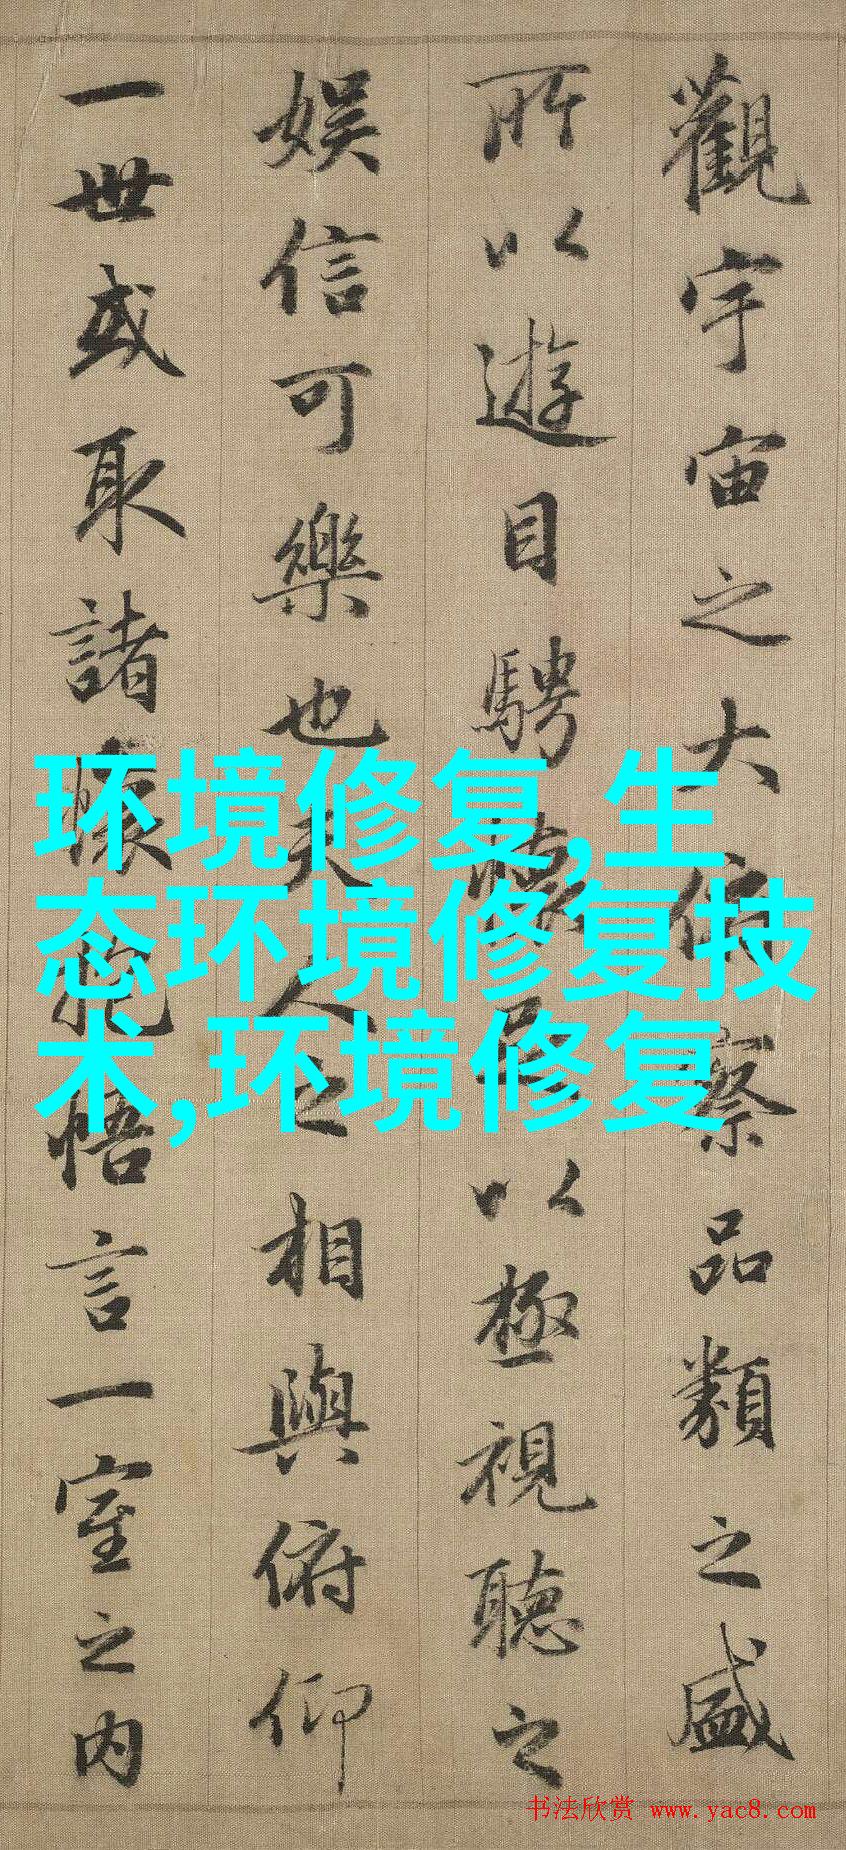 觀宇宙之大俯察品類之盛
所以遊目騁懷足以極視聽之
娛信可樂也夫人之相與俯仰
一世或取諸懷抱悟言一室之内
环境修复,生
态环境修复技
术,环境修复
书法欣赏 www.yac8.com